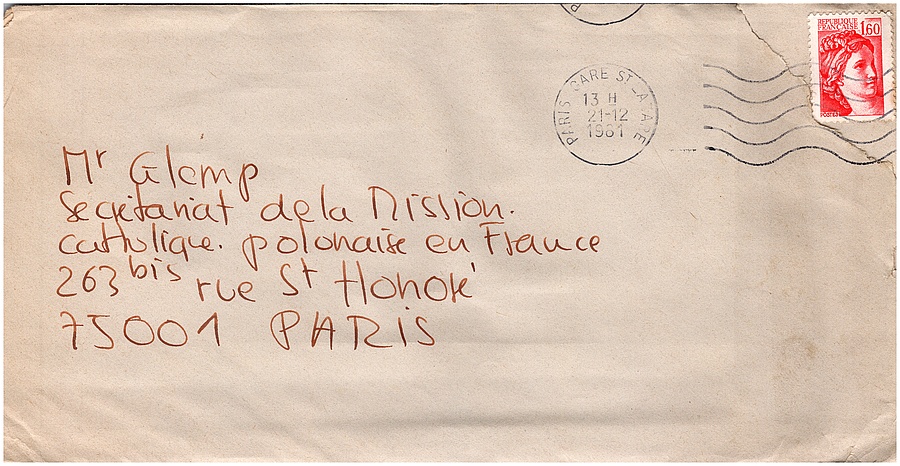 REPUBLIQUE
FRANÇAISE 1,60
POSTES
PARIS GARE ST LAZARE
13 H
21-12
1981
Mr Glemp
Secrétariat de la Mission.
catholique. polonaise en France
263 bis rue St Honoré
75001 PARIS